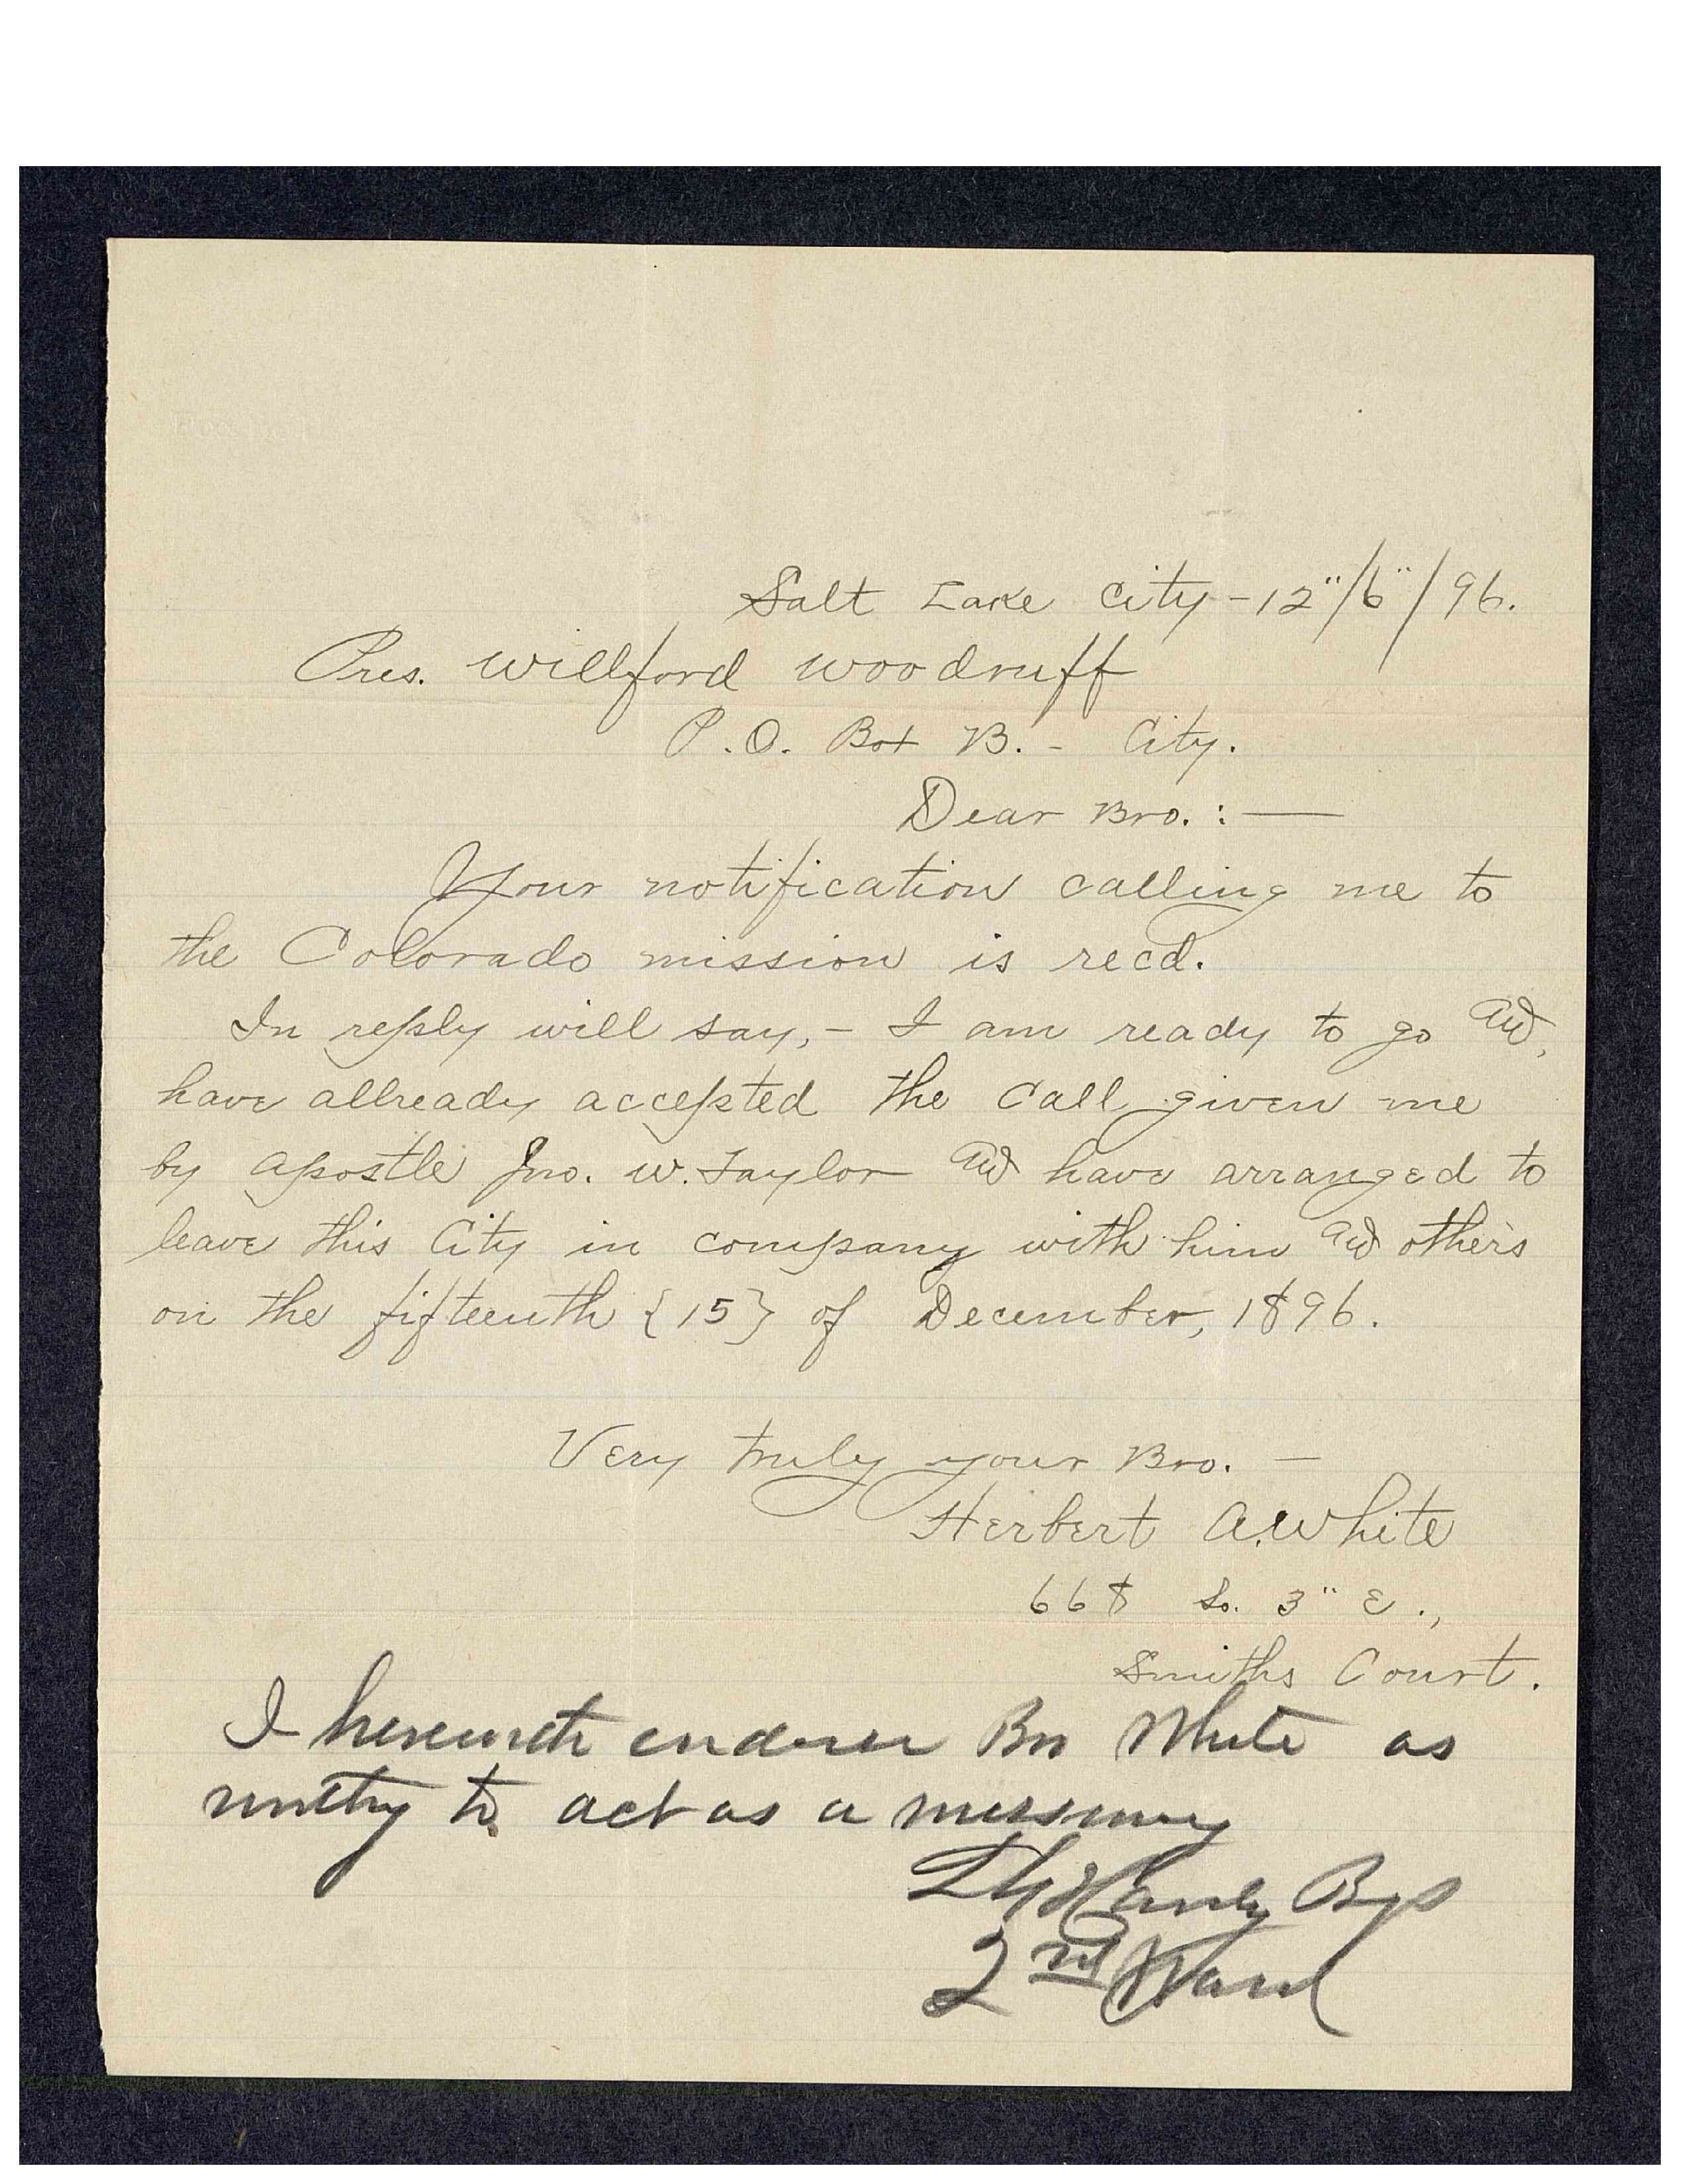 Salt Lake City - 12"/6"/96.
Pres. Willford Woodruff
P.O. Box B. - City.
Dear Bro. : —
Your notification calling me to
the Colorado mission is recd.
In reply will say, - I am ready to go and,
have allready accepted the call given me
by Apostle Jno. W. Taylor and have arranged to
leave this City in company with him and others
on the fifteenth {15} of December, 1896.
Very truly your Bro. —
Herbert A. White
668 So. 3" E.,
Smiths Court.
I herewith endorse Bro White as
worthy to act as a missionary
2nd Ward